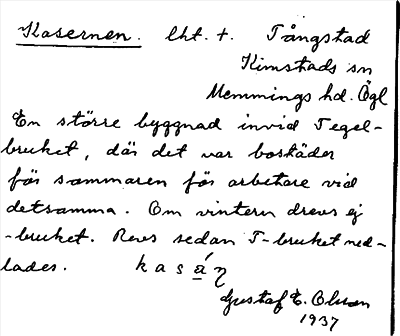 Kasernen. lht. t. Tångstad
Kimstads sn
Memmings hd. Ögl
En större byggnad invid Tegel-
bruket, där det var bostäder
för sommaren för arbetare vid
detsamma. Om vintern drevs ej
-bruket. Revs sedan T-bruket ned-
lades. kasáɳ
Gustaf E. Olsson
1937